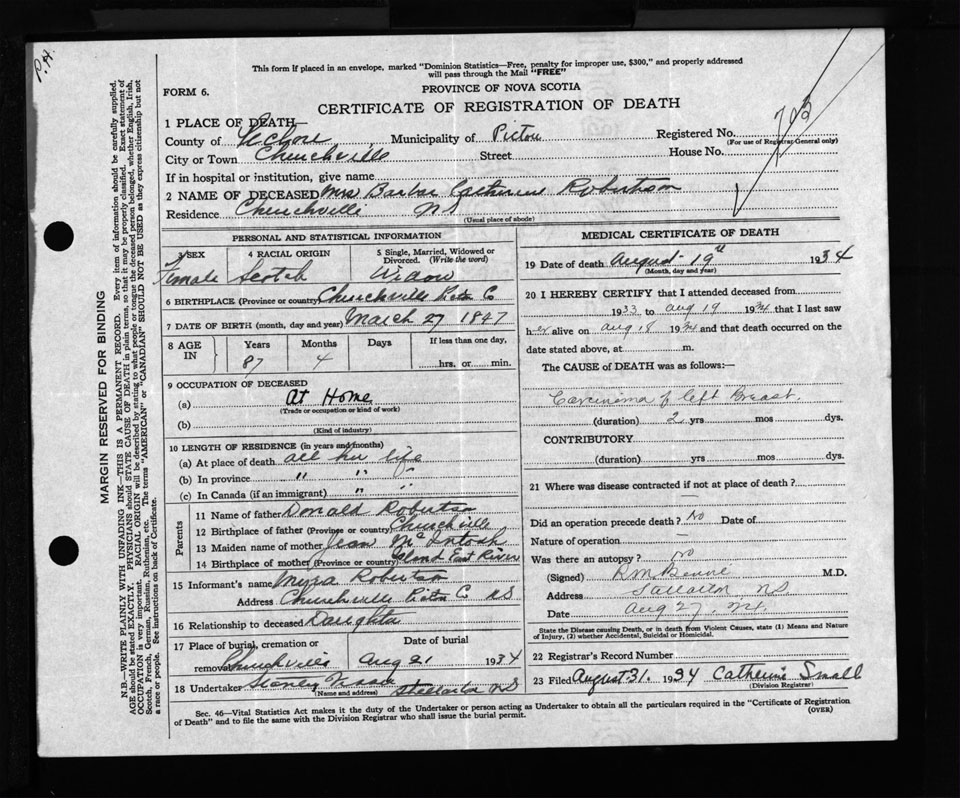 P.H.
This form if placed in an envelope, marked "Dominion Statistics—Free, penalty for improper use, $300," and properly addressed
will pass through the Mail "FREE"
FORM 6.
PROVINCE OF NOVA SCOTIA
CERTIFICATE OF REGISTRATION OF DEATH
1 PLACE OF DEATH—
County of Pictou Municipality of Pictou Registered No. 703
(For use of Registrar General only)
City or Town Churchville Street House No.
If in hospital or institution, give name
2 NAME OF DECEASED Mrs Barbar Catherine Robertson
Residence Churchville NS
(Usual place of abode)
PERSONAL AND STATISTICAL INFORMATION
3 SEX 4 RACIAL ORIGIN 5 Single, Married, Widowed or Divorced. (Write the word)
Female Scotch Widow
6 BIRTHPLACE (Province or country) Churchville Pictou C
7 DATE OF BIRTH (month, day and year) March 27 1847
8 AGE IN Years Months Days If less than one day,
87 4 hrs. or min.
9 OCCUPATION OF DECEASED
(a) At Home
(Trade or occupation or kind of work)
(b)
(Kind of industry)
10 LENGTH OF RESIDENCE (in years and months)
(a) At place of death all her life
(b) In province " " "
(c) In Canada (if an immigrant) " "
Parents
11 Name of father Donald Robertson
12 Birthplace of father (Province or country) Churchville
13 Maiden name of mother Jean McIntosh
14 Birthplace of mother (Province or country) Island East River
15 Informant's name Myra Robertson
Address Churchville Pictou C NS
16 Relationship to deceased Daughter
17 Place of burial, cremation or removal Date of burial
Churchville Aug 21 1934
18 Undertaker Stanley Stellarton NS
Name and address
MEDICAL CERTIFICATE OF DEATH
19 Date of death August 19th 1934
(Month, day and year)
20 I HEREBY CERTIFY that I attended deceased from
1933 to Aug 19 1934 that I last saw
her alive on Aug 18 1934 and that death occurred on the
date stated above, at m.
The CAUSE of DEATH was as follows:—
Carcinoma of left Breast.
(duration) 2 yrs mos dys.
CONTRIBUTORY
(duration) yrs mos dys.
21 Where was disease contracted if not at place of death?
—
Did an operation precede death? No Date of
Nature of operation —
Was there an autopsy? No
(Signed) R.M. Benvie M.D.
Address Stellarton NS
Date Aug 27,
State the Disease causing Death, or in death from Violent Causes, state (1) Means and Nature
of Injury, (2) whether Accidental, Suicidal or Homicidal.
22 Registrar's Record Number
23 Filed August 31. 1934 Catherine Small
(Division Registrar)
Sec. 46—Vital Statistics Act makes it the duty of the Undertaker or person acting as Undertaker to obtain all the particulars required in the "Certificate of Registration
of Death" and to file the same with the Division Registrar who shall issue the burial permit.
(OVER)
MARGIN RESERVED FOR BINDING
N.B.—WRITE PLAINLY WITH UNFADING INK—THIS IS A PERMANENT RECORD. Every item of information should be carefully supplied.
AGE should be stated EXACTLY. PHYSICIANS should STATE CAUSE OF DEATH in plain terms, so that it may be properly classified. Exact statement of
OCCUPATION is very important. RACIAL ORIGIN will be described by stating to what people or tongue the deceased person belonged, whether English, Irish,
Scotch, French, German, Russian, Ruthenian, etc. The terms "AMERICAN" or "CANADIAN" SHOULD NOT BE USED as they express citizenship but not
a race or people. See instructions on back of Certificate.